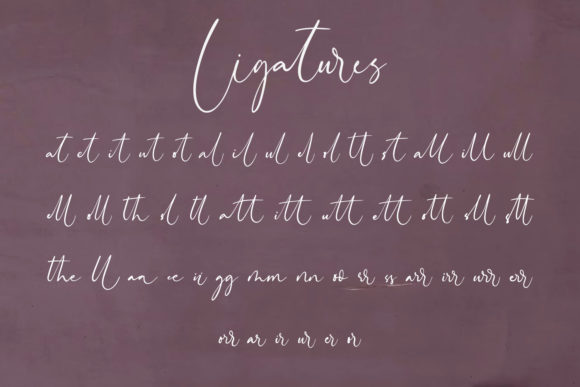 Ligatures
at et it ut ot al il ul el ol tt st all ill ull
ell oll th sl tl att itt utt ett ott sll stt
the ll aa ee ii gg mm nn oo sr ss arr irr urr err
orr ar ir ur er or